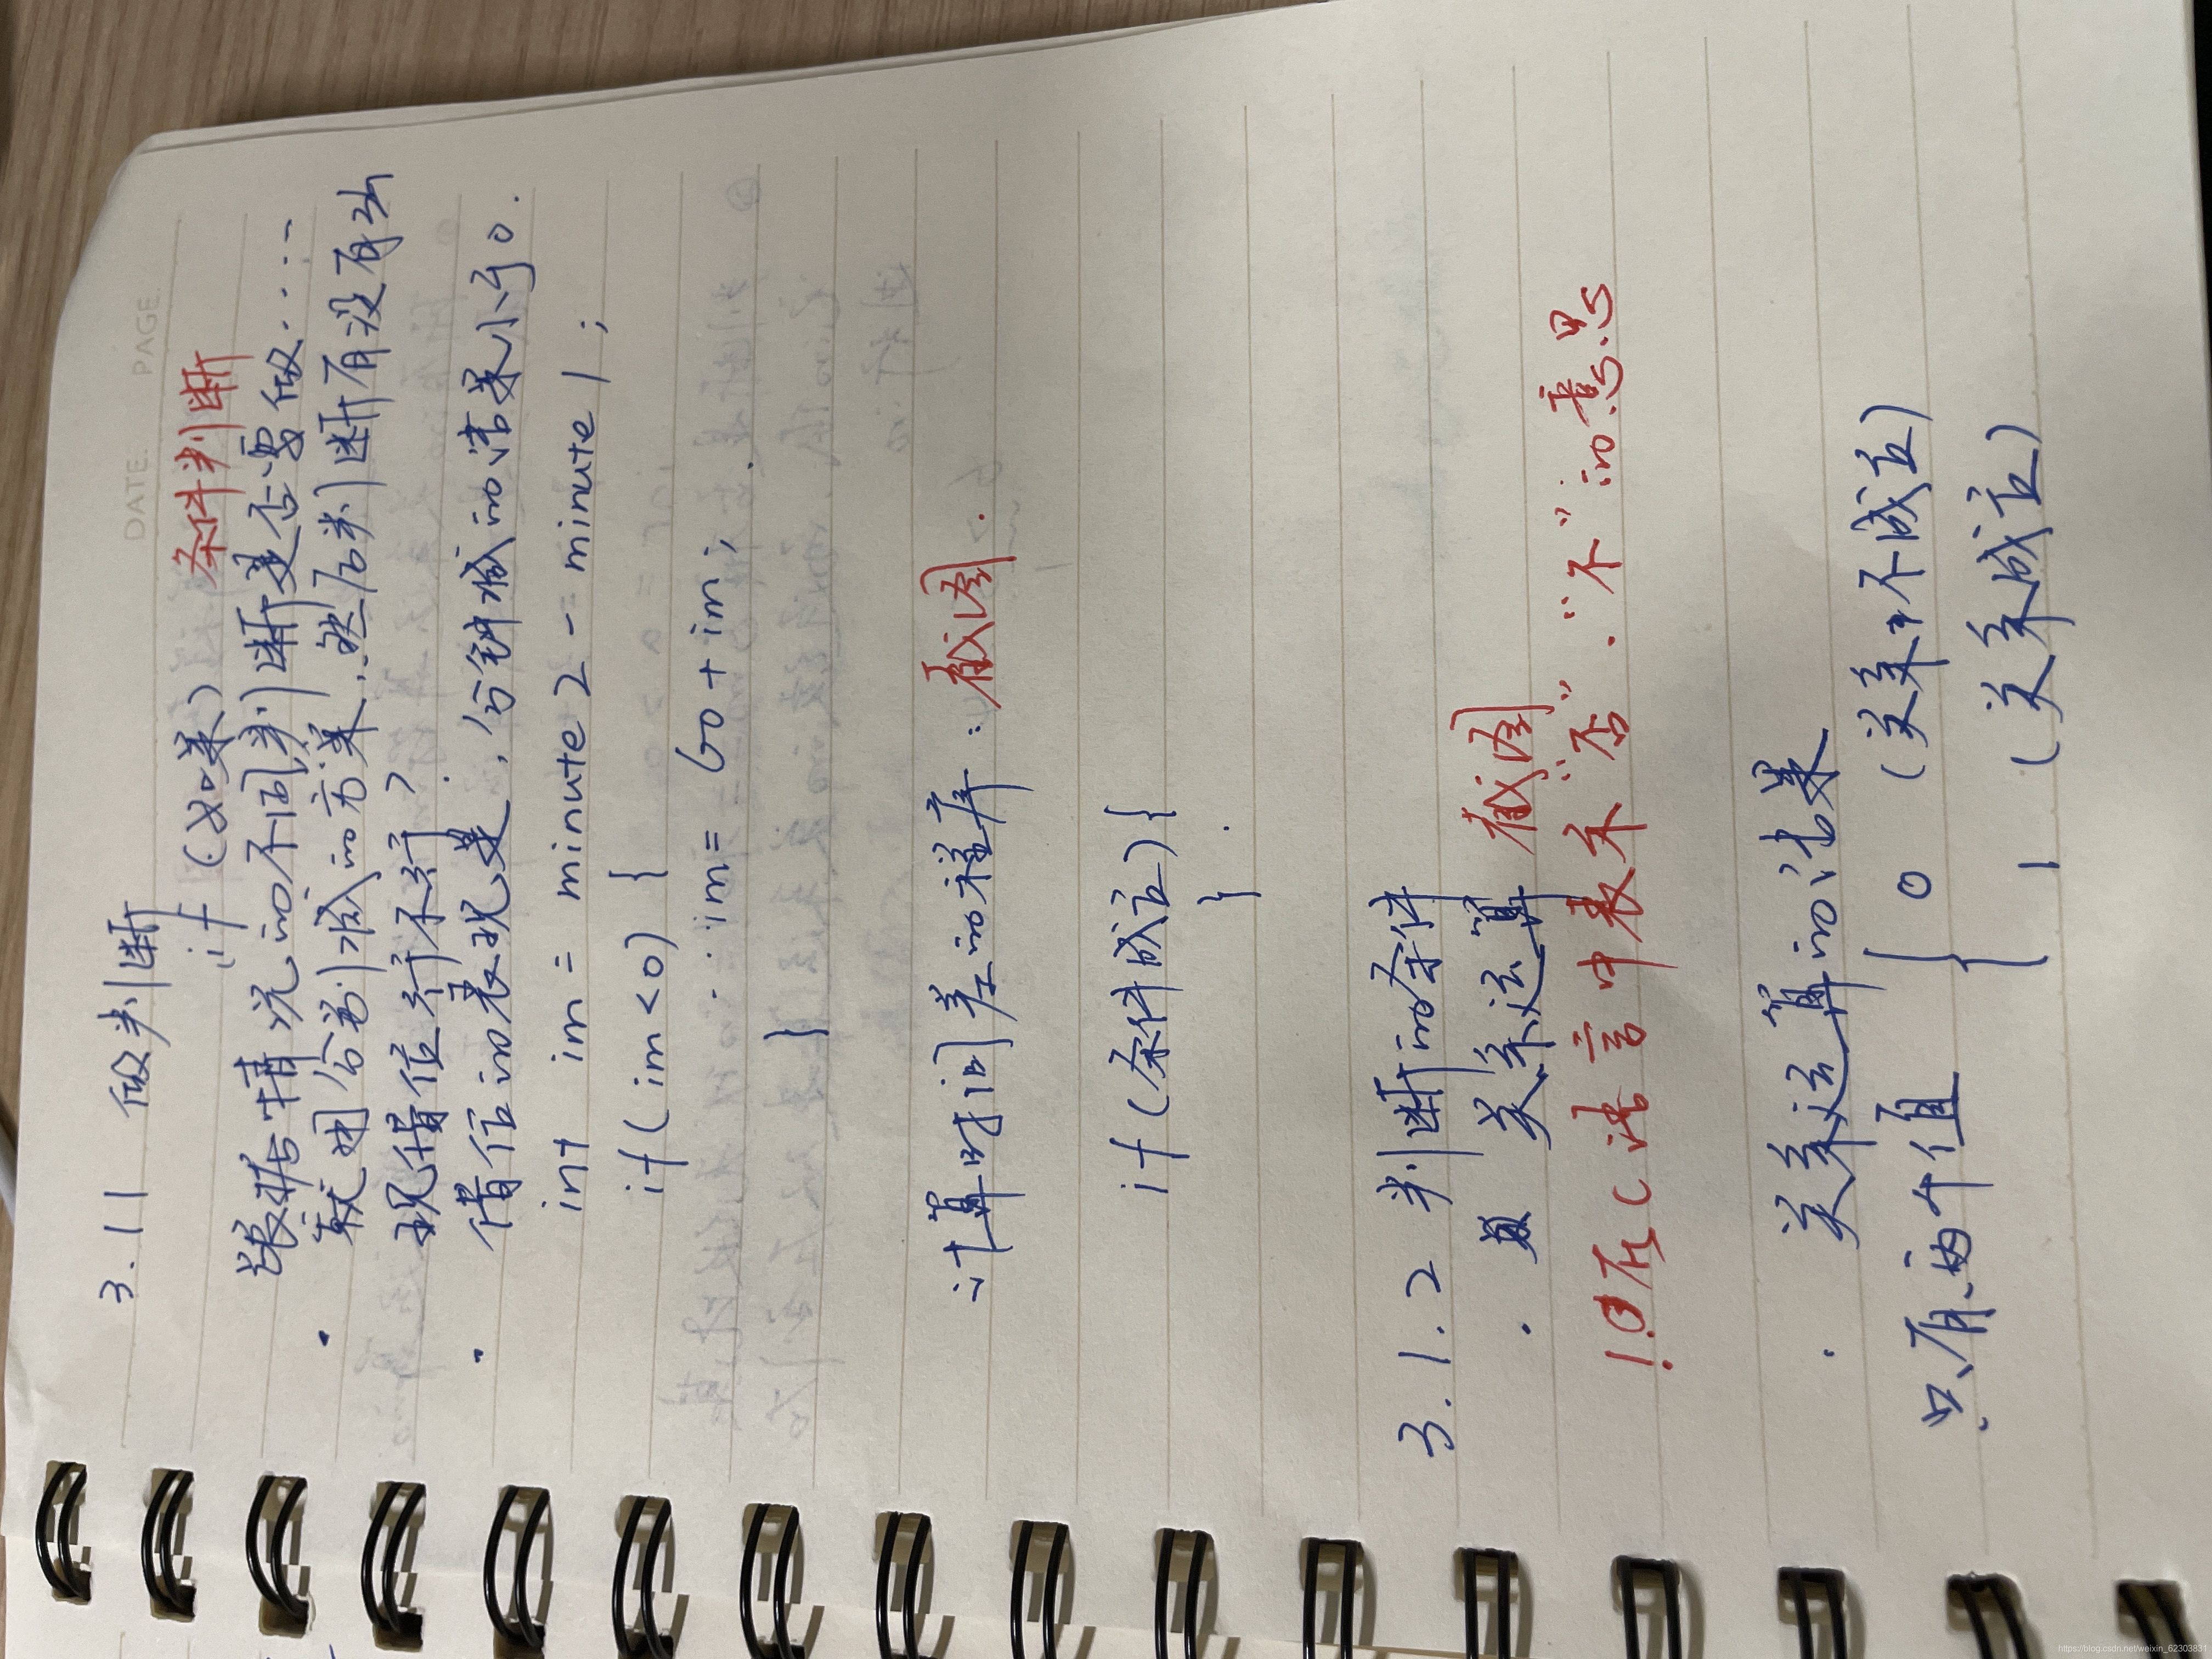 DATE. PAGE.
3.1 1 做判断
if (如果) 条件判断
根据情况的不同判断是否要做.....
· 较 分别减的方案,然后判断有没有出
现借位行不行?
· 借位的表现是,分钟减的结果小于0.
int im = minute2 - minute1;
if (im<0) {
im = 60+im;
}
计算时间差的程序:截图.
if (条件成立) {
}
3.1.2 判断的条件
· 关系运算 截图
!①在C语言中表示“否”.“不”的意思
· 关系运算的结果
只有两个值 { 0 (关系不成立)
1 (关系成立)
https://blog.csdn.net/weixin_62303831